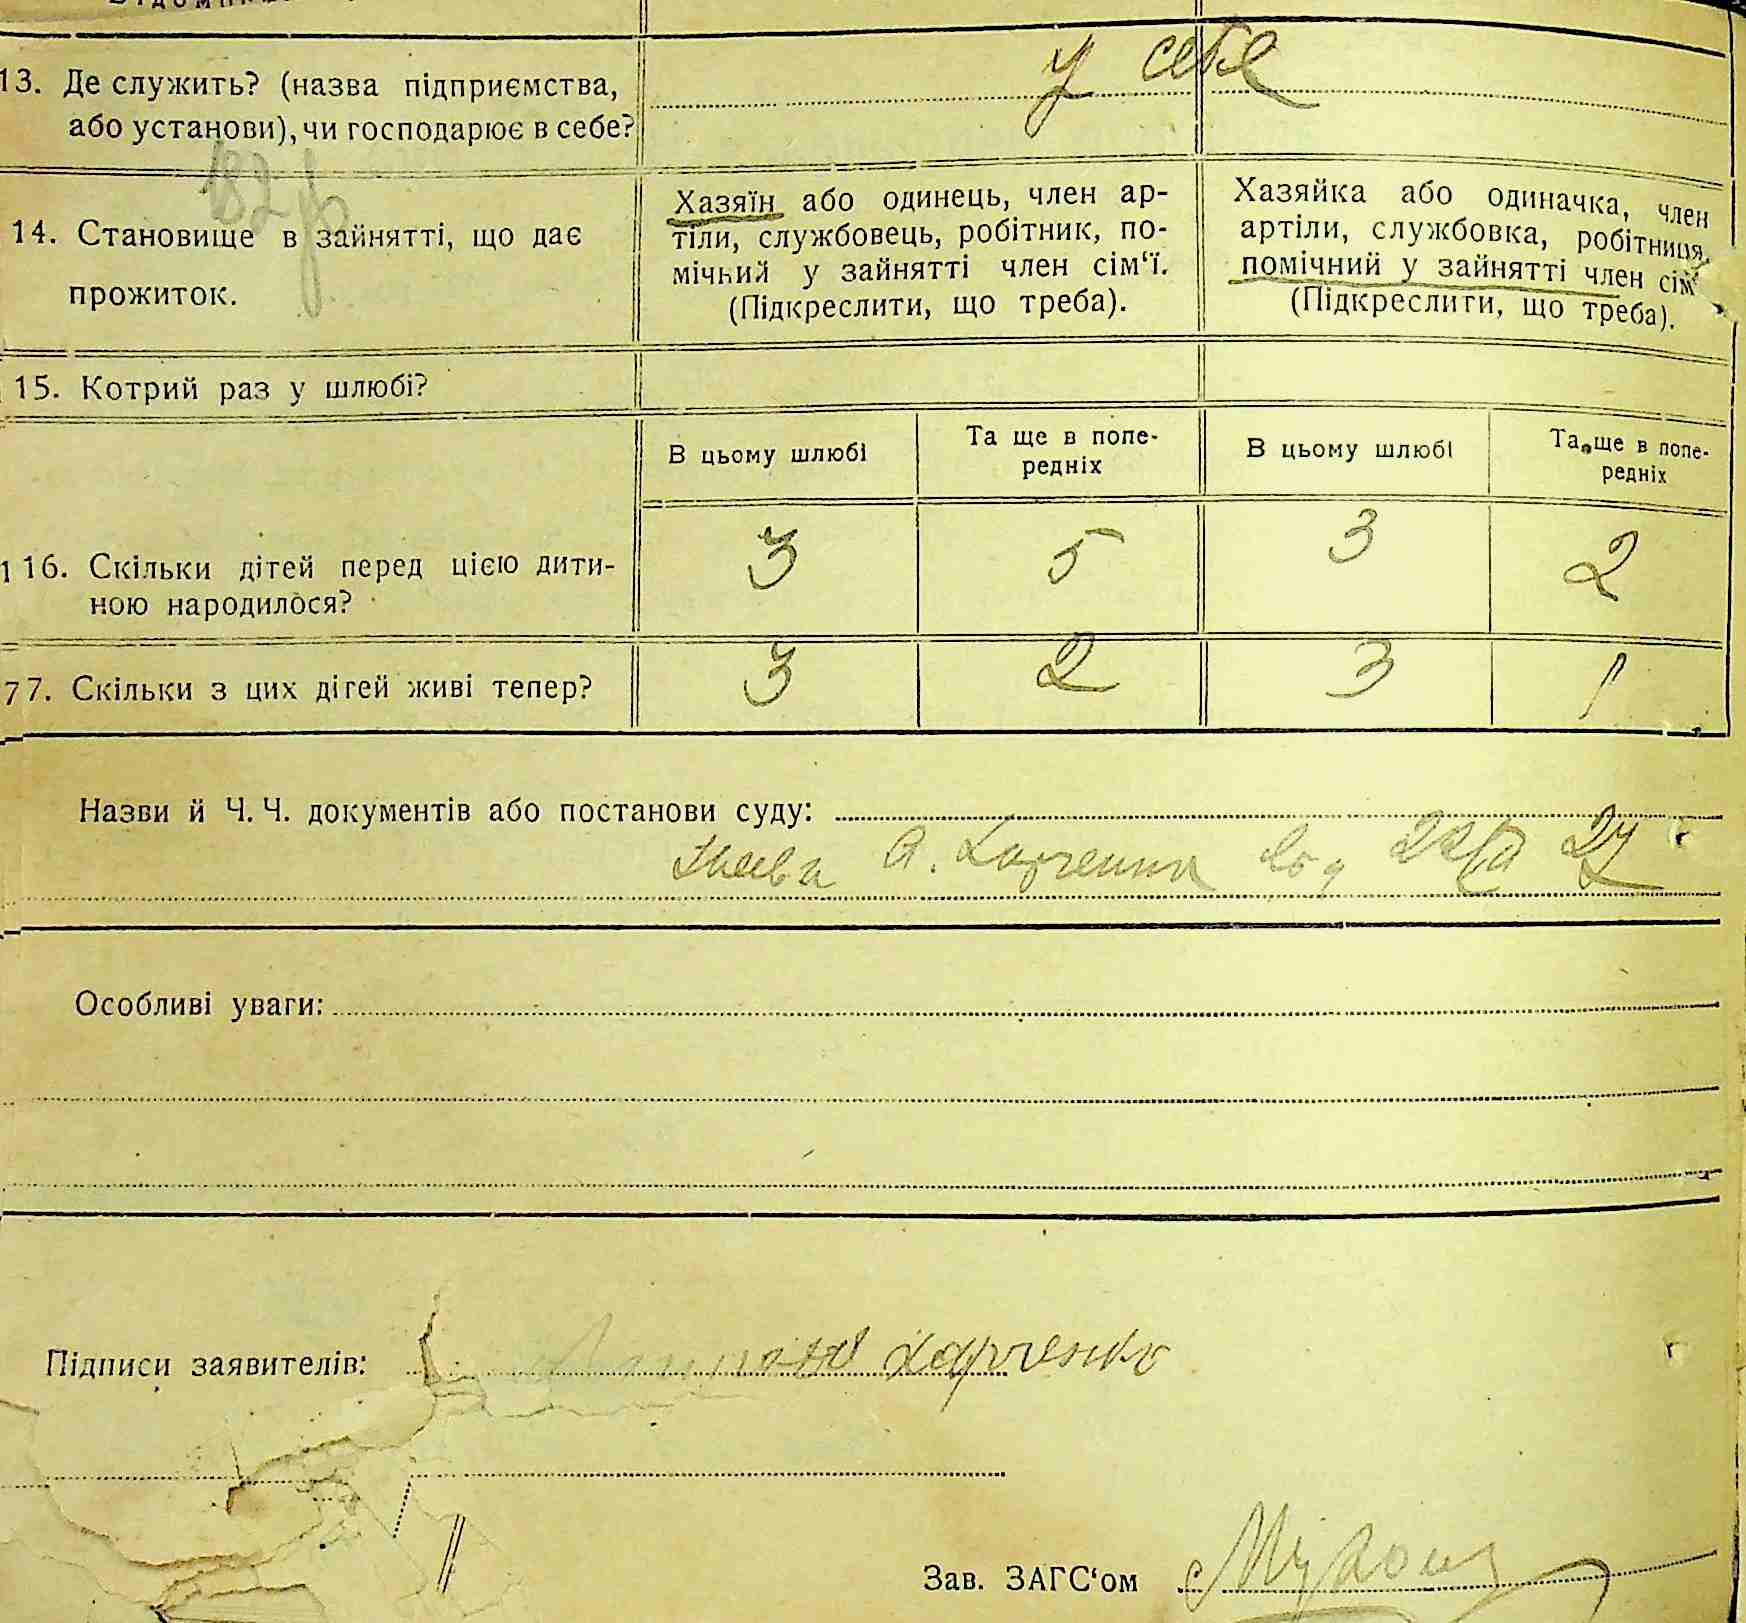 13. Де служить? (назва підприємства,
або установи), чи господарює в себе?
у себе
14. Становище в зайнятті, що дає
прожиток.
Хазяїн або одинець, член ар-
тіли, службовець, робітник, по-
мічний у зайнятті член сім‘ї.
(Підкреслити, що треба).
Хазяйка або одиначка, член
артіли, службовка, робітниця,
помічний у зайнятті член сім
(Підкреслити, що треба).
15. Котрий раз у шлюбі?
В цьому шлюбі
Та ще в попе-
редніх
В цьому шлюбі
Та ще в попе-
редніх
16. Скільки дітей перед цією дити-
ною народилося?
3 5 3 2
7. Скільки з цих дітей живі тепер?
3 2 3 1
Назви й Ч. Ч. документів або постанови суду:
А. Харченка 27
Особливі уваги:
Підписи заявителів: Харченко
Зав. ЗАГС‘ом